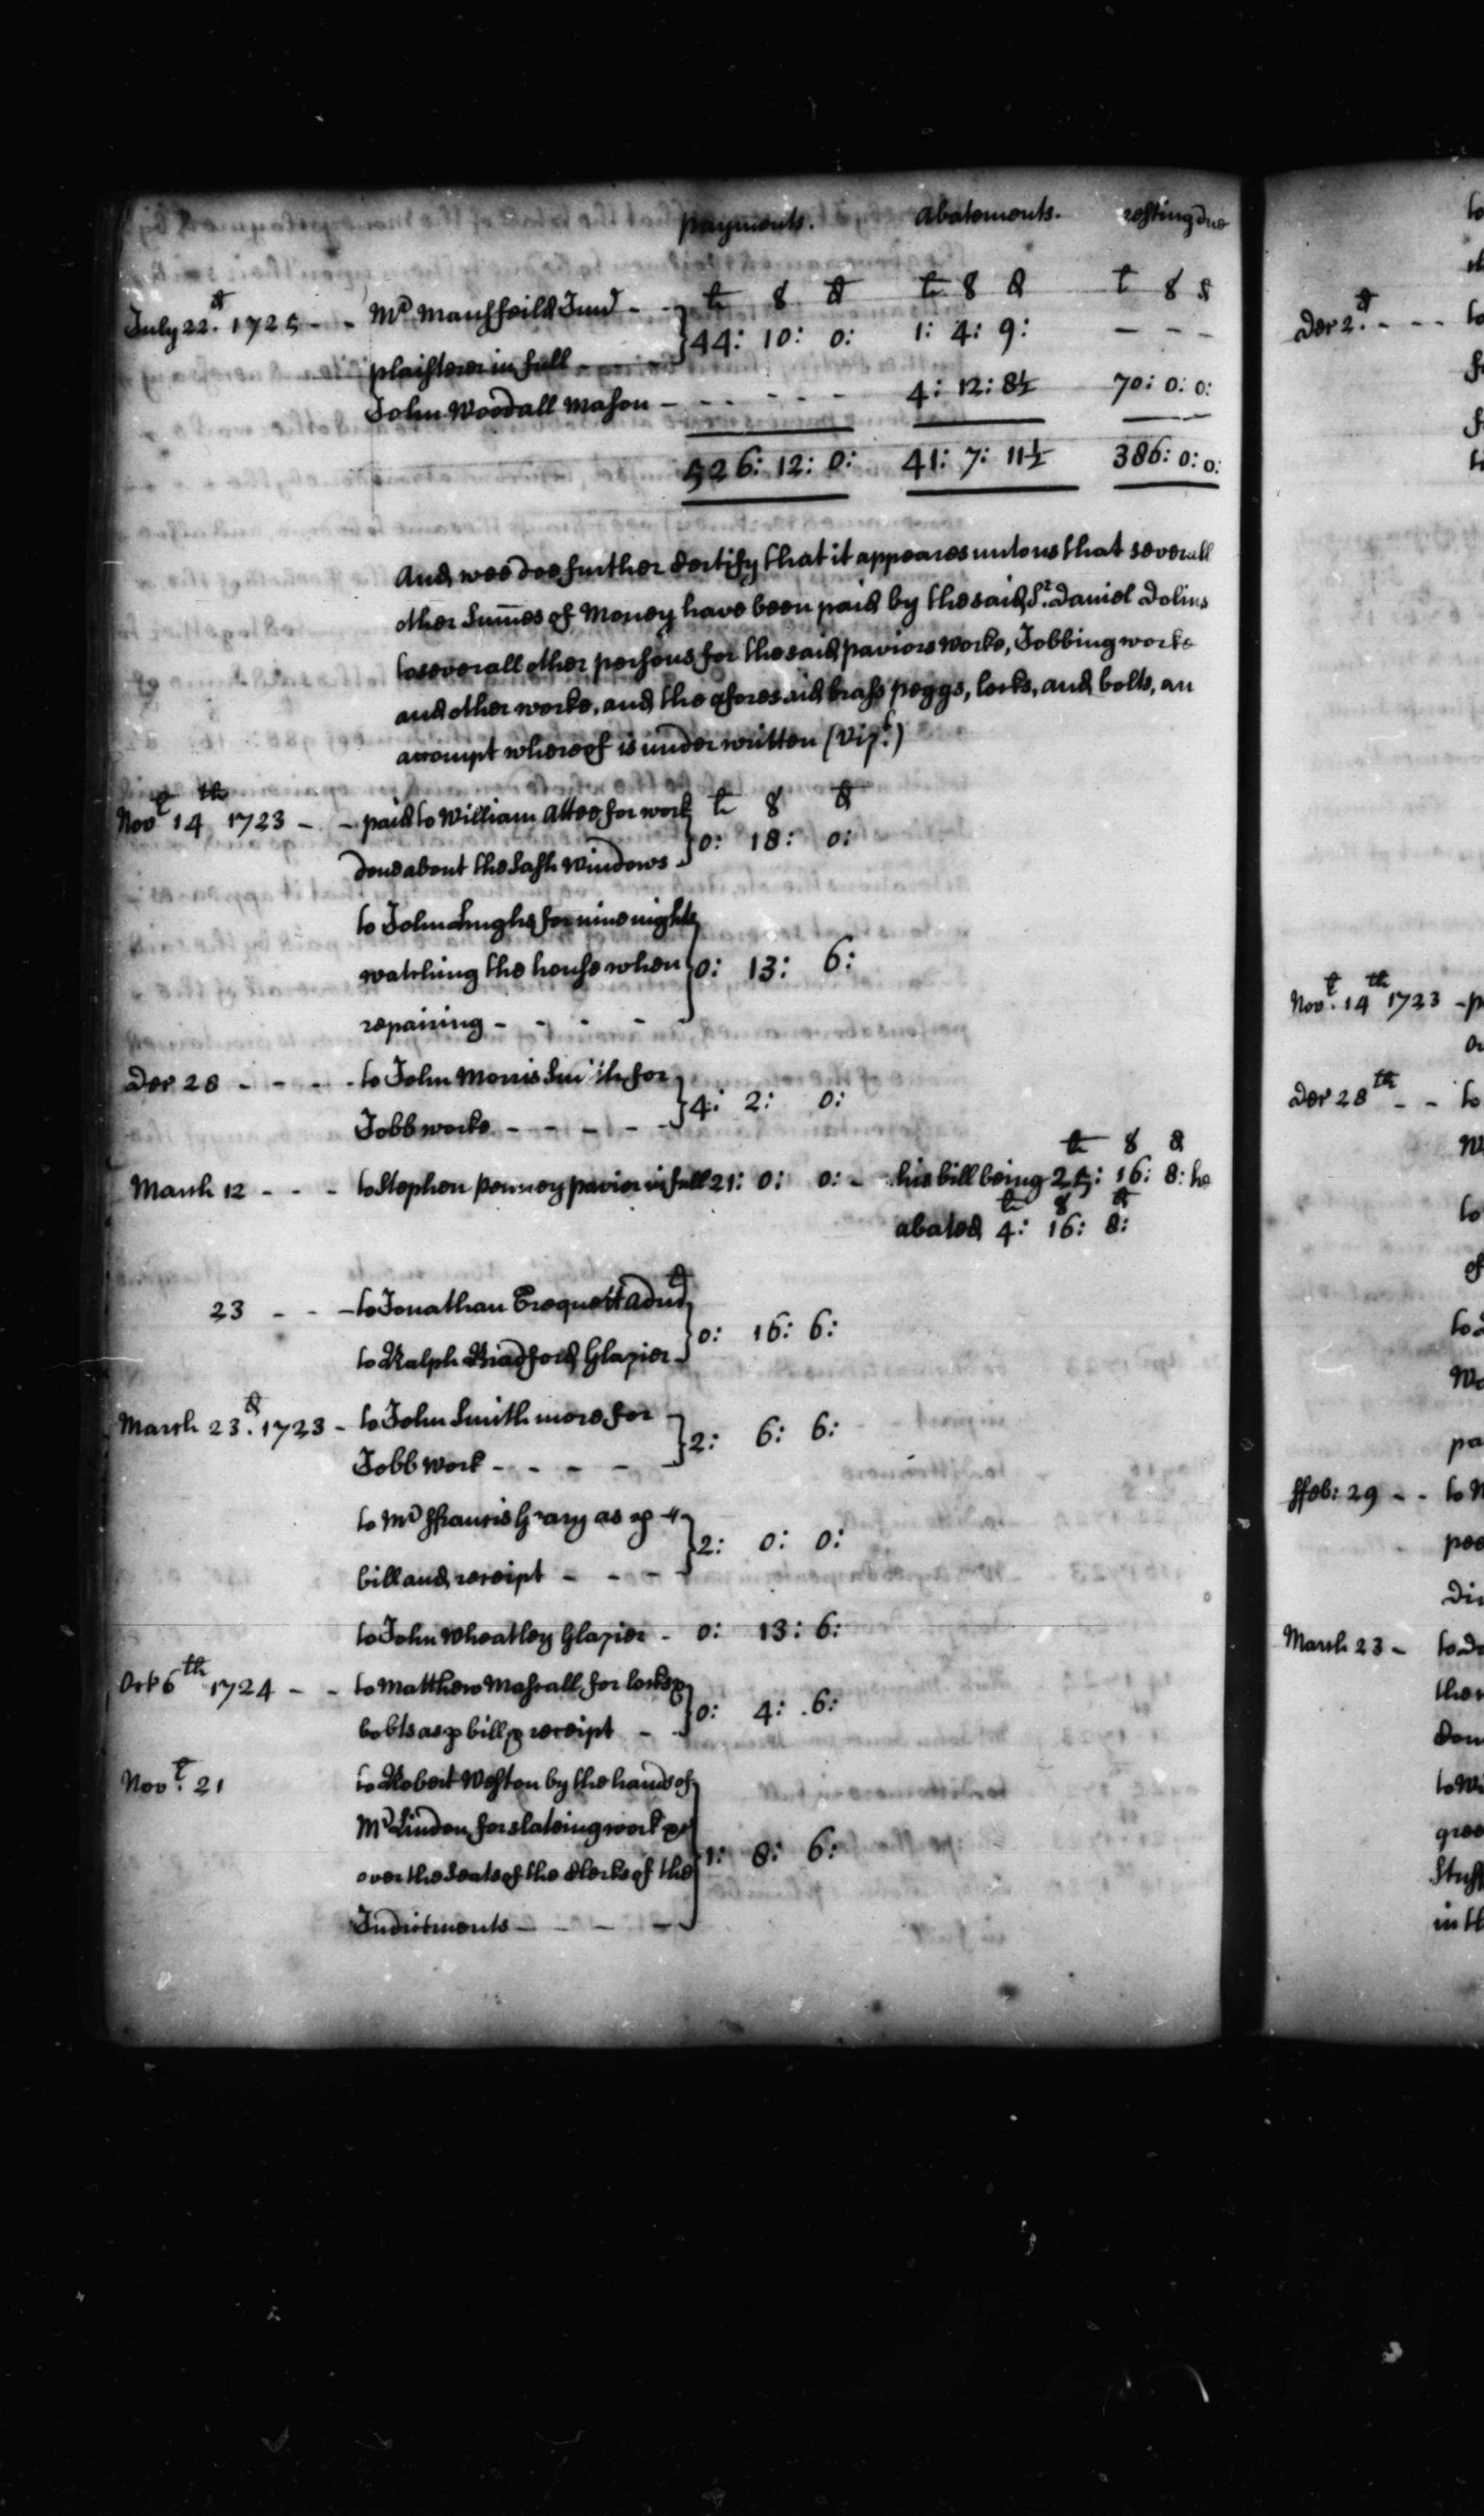 payments. abatements. resting due
li s d li s d li s d
July 22.d 1725 - - Mr Mansfeild Junr - -
44: 10: 0: 1: 4: 9: - - -
plaisterer in full - - -
John Woodall Mason - - - - - - 4: 12: 8½ 70: 0: 0:
526: 12: 0: 41: 7: 11½ 386: 0: 0:
And wee doe further Certify that it appeares unto us that severall
other Summes of Money have been paid by the said Sr. Daniel Dolins
to severall other persons for the said paviors worke, Jobbing worke
and other worke, and the aforesaid brass peggs, locks, and bolts, an
accompt whereof is under written (Vizt.)
Novr 14th 1723 - - paid to William Attee for work li s d
0: 18: 0:
done about the Sash Windows -
to John Hughs for nine nights
watching the house when 0: 13: 6:
repairing - - - -
Decr 28 - - - - to John Morris Smith for
4: 2: 0:
Jobb worke - - - - -
li s d
March 12 - - - to Stephen Penney pavior in full 21: 0: 0: - his bill being 25: 16: 8: he
li s d
abated 4: 16: 8:
23 - - - to Jonathan Croquett and
0: 16: 6:
to Ralph Bradford Glazier -
March 23.d 1723 - to John Smith more for
2: 6: 6:
Jobb work - - - -
to Mr ffrancis Gray as p
2: 0: 0:
bill and receipt - - - -
to John Wheatley Glazier - 0: 13: 6:
Oct 6th 1724 - - to Matthew Mascall for locks &
0: 4: 6:
bolts as p bill & receipt - -
Novr. 21 to Robert Weston by the hands of
Mr Lindon for slateing work
1: 8: 6:
over the Seats of the Clerks of the
Indictments - - - -
Decr 2.d - - - to
Novr. 14th 1723 - p
Decr 28th - - to
ffeb: 29 - - to
March 23 -